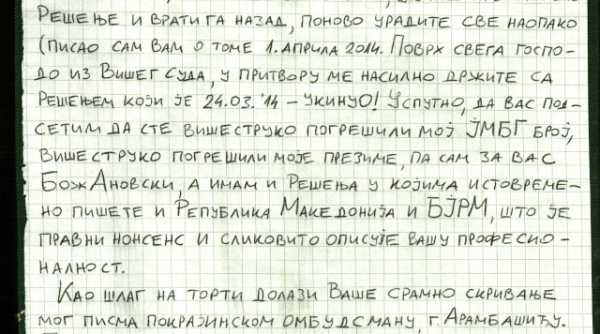 Решење и врати га назад, поново урадите све наопако
(писао сам вам о томе 1. априла 2014. Поврх свега госпо-
до из Вишег суда, у притвору ме насилно држите са
решењем који је 24.03.'14 – укинуо! Успутно, да вас под-
сетим да сте вишеструко погрешили мој ЈМБГ број,
вишеструко погрешили моје презиме, па сам за вас
БожАновски, а имам и Решења у којима истовреме-
но пишете и Република Македонија и БЈРМ, што је
правни нонсенс и сликовито описује вашу професио-
налност.
Као шлаг на торти долази Ваше срамно скривање
мог писма Покрајинском омбудсману, г. Арамбашићу.